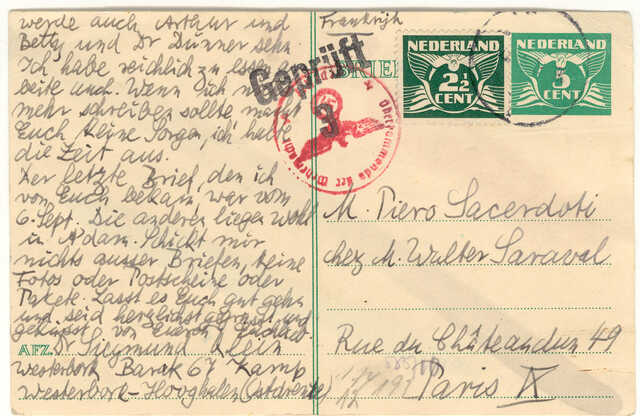 werde auch Arthur und
Betty und Dr Dünner sehn
Ich habe reichlich zu essen ar-
beite auch. Wenn ich nicht
mehr schreiben sollte macht
Euch keine Sorgen, ich habe
die Zeit aus.
Der letzte Brief, den ich
von Euch bekam war vom
6. Sept. Die anderen liegen wohl
in A'dam. Schickt mir
nichts ausser Briefen, keine
Fotos oder Postscheine oder
Pakete. Lasst es Euch gut gehn
und seid herzlichst gegrüsst und
geküsst von Eurem
AFZ. Dr Siegmund Klein
Westerbork Barak 67 Kamp
Westerbork-Hooghalen (Ostdrente)
Frankrijk
Geprüft
3
Oberkommando der Wehrmacht
BRIEF
NEDERLAND
2½
CENT
NEDERLAND
5
CENT
M. Piero Sacerdoti
chez M. Walter Saraval
Rue du Châteaudun 49
Paris IX